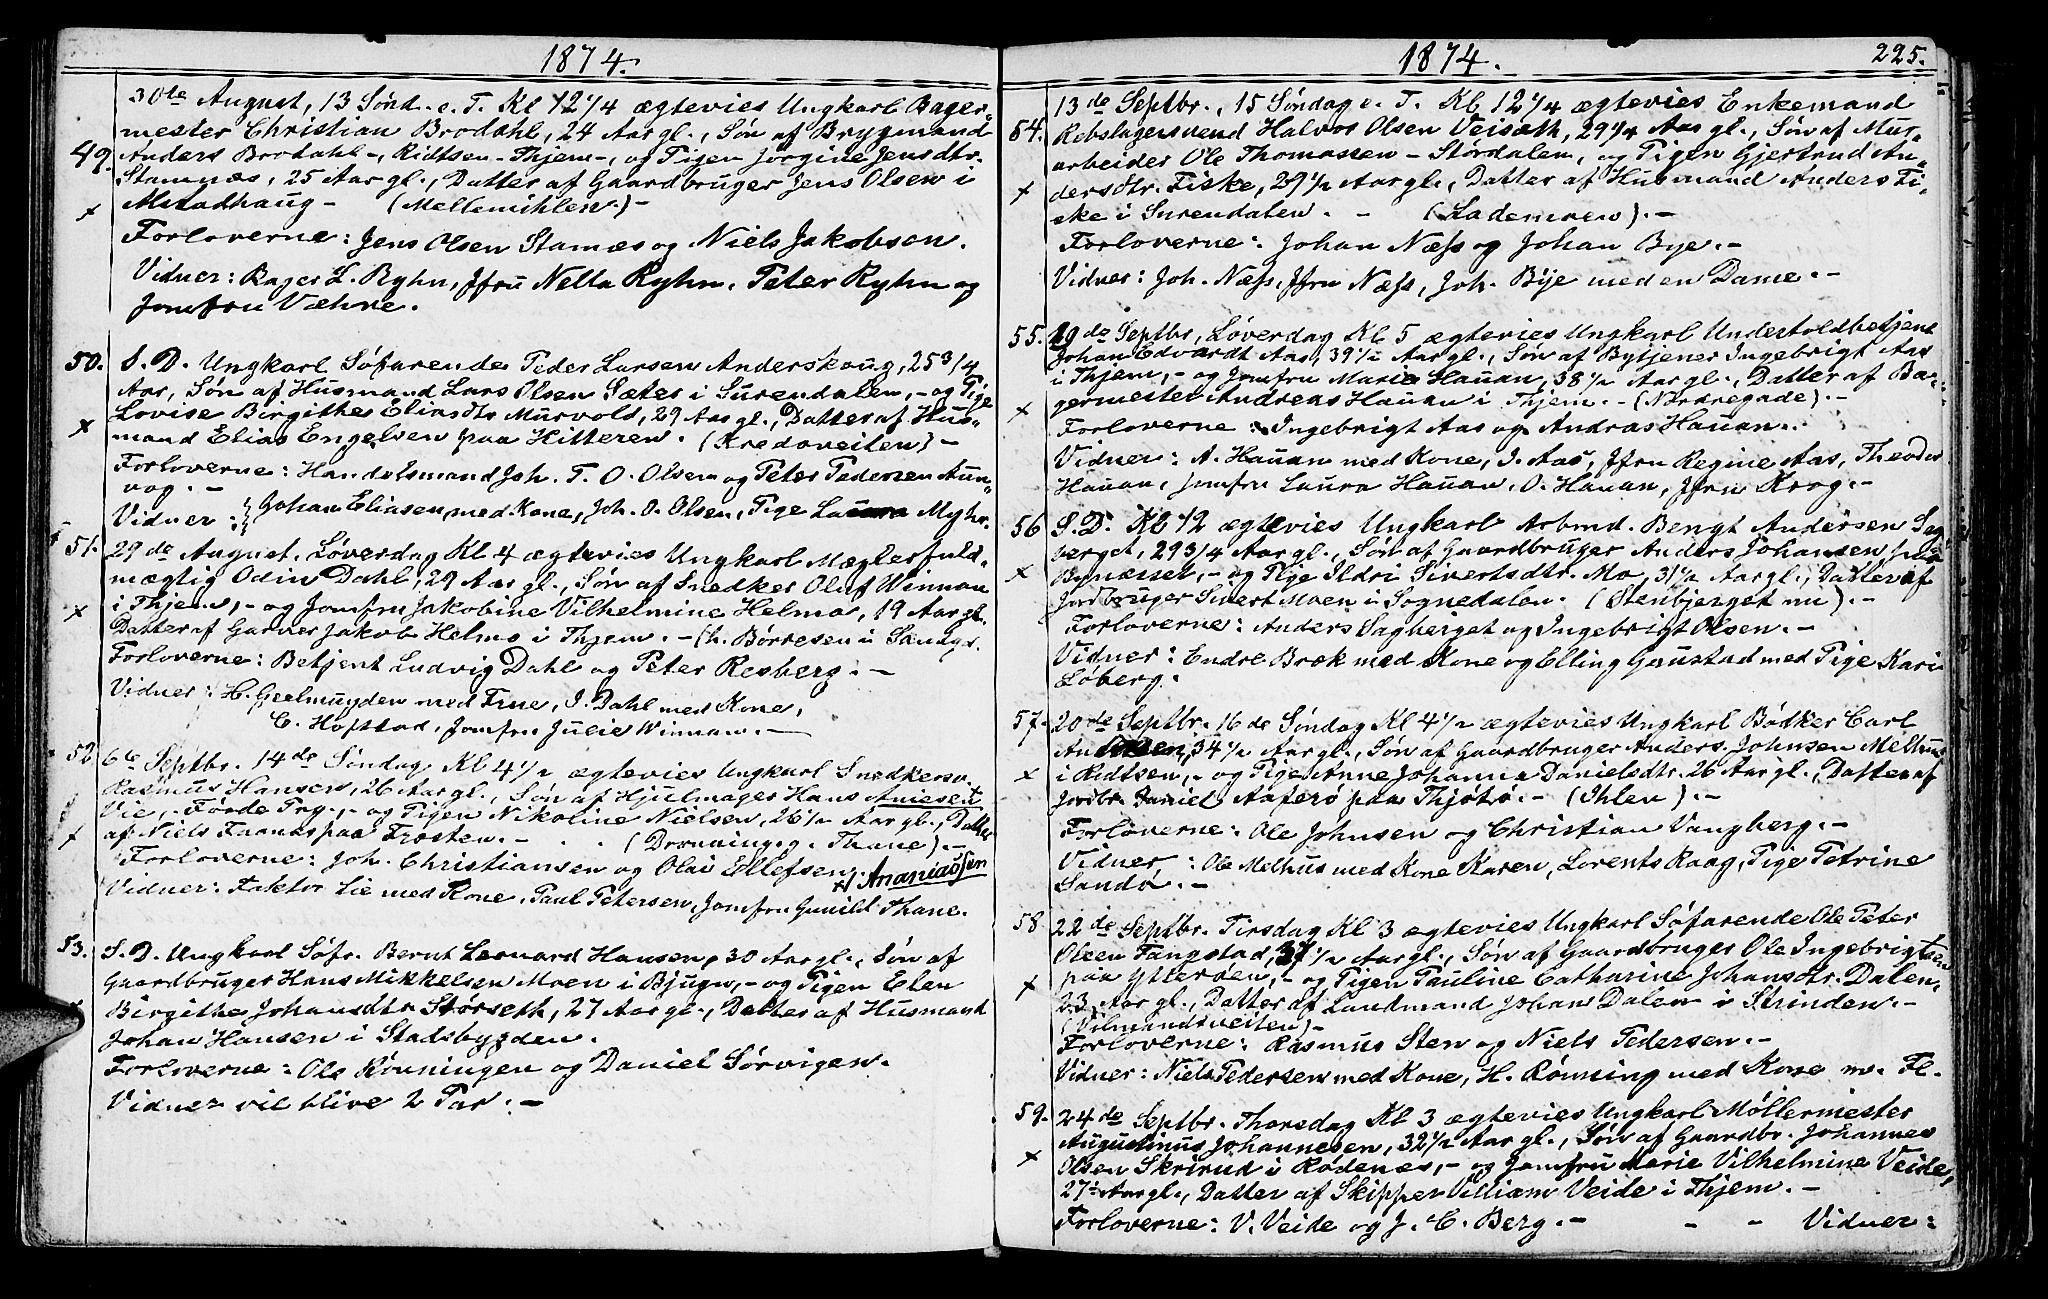 1874.
30te August, 13 Sønd. e. T. Kl 12 1/4 ægtevies Ungkarl Bager-
mester Christian Brodahl, 24 Aar gl., Søn af Brygmand
49. Anders Brodahl-, Ridtsen-Thjem-, og Pigen Jørgine Jensdtr.
Stamnæs, 25 Aar gl., Datter af Gaardbruger Jens Olsen i
x Meradhaug - (Mellemihlen.)-
Forloverne: Jens Olsen Stamæs og Niels Jakobson.
Vidner: Bager L. Ryhn, Jfru Nella Ryhn, Peter Ryhn og
Jomfru Væhre.
50. S. D. Ungkarl Søfarende Peder Larsen Anderskoug, 25 3/4
Aar, Søn af Husmand Lars Olsen Sæter i Surendalen,- og Pige
Lovise Birgithe Eliasdtr Murvold, 29 Aar gl., Datter af Hus-
x mand Elias Engelsen paa Hitteren. (Kredoveiten)-
Forloverne: Handelsmand Joh. T. O. Olsen og Peter Pedersen Aun-
vog. -
Vidner: Johan Eliasen, med Kone, Joh. O. Olsen, Pige Laura Myhr.
51. 29de August, Løverdag Kl 4 ægtevies Ungkarl Mæglerfuld-
mægtig Odin Dahl, 29 Aar gl., Søn af Snedker Oluf Winman
x i Thjem,- og Jomfru Jakobine Vilhelmine Helmo, 19 Aar gl.
Datter af Garver Jakob Helmo i Thjem. - (h. Børresen i Sandgd.
Forloverne: Betjent Ludvig Dahl og Peter Resberg. -
Vidner: H. Geelmuyden med Frue, I. Dahl med Kone,
C. Hofstad, Jomfru Julie Winman. -
52 6te Septbr. 14de Søndag Kl 4 1/2 ægtevies Ungkarl Snedkersv.
Rasmus Hansen, 26 Aar gl., Søn af Hjulmager Hans Aniesen +
Vie, Førde Prg,- og Pigen Nikoline Nielsen, 26 1/2 Aar gl., Datter
x af Niels Frands paa Frosten. - (Dronningg. Thane).-
Forloverne: Joh. Christiansen og Olai Ellefsen.
+/ Ananiassen
Vidner: Faktor Lie med Kone, Paul Petersen, Jomfru Gunild Thane.
53. S. D. Ungkarl Søfr. Bernt Leonard Hansen, 30 Aar gl., Søn af
Gaardbruger Hans Mikkelsen Moen i Bjugn,- og Pigen Elen
x Birgithe Johansdtr Størseth, 27 Aar gl., Datter af Husmand
Johan Hansen i Stadsbygden.
Forloverne: Ole Rønningen og Daniel Sørvigen.
Vidner vil blive 2 Par. -
1874. 225.
13de Septbr., 15 Søndag e. T. Kl 12 1/4 ægtevies Enkemand
54. Rebslagersvend Halvor Olsen Veiseth, 29 1/4 Aar gl., Søn af Mur-
arbeider Ole Thomassen - Stördalen, og Pigen Gjertrud An-
x dersdtr. Fiske, 29 1/2 Aar gl., Datter af Husmand Anders Fi-
ske i Surendalen. - (Lademoen). -
Forloverne: Johan Næss og Johan Bye. -
Vidner: Joh. Næss, Jfru Næss, Joh. Bye med en Dame. -
55. 19de Septbr, Løverdag Kl 5 ægtevies Ungkarl Undertoldbetjent
Johan Edvardt Aas, 39 1/2 Aar gl., Søn af Bytjener Ingebrigt Aas
i Thjem,- og Jomfru Marie Hauan, 38 1/2 Aar gl., Datter af Ba-
x germester Andreas Hauan i Thjem. - (Nordregade). -
Forloverne: Ingebrigt Aas og Andras Hauan. -
Vidner: A. Hauan med Kone, I. Aas, Jfru Regine Aas, Theodor
Hauan, Jomfru Laura Hauan, O. Hauan, Jfru Krog. -
56 S. D. Kl 12 ægtevies Ungkarl Arbmd. Bengt Andersen Sag-
berget, 29 3/4 Aar gl., Søn af Gaardbruger Anders Johansen paa
x Bynæsset,- og Pige Ildri Sivertsdtr. Mo, 31 1/2 Aar gl., Datter af
Jordbruger Sivert Moen i Sognedalen. (Stenbjerget nu). -
Forloverne: Anders Sagberget og Ingebrigt Olsen. -
Vidner: Endre Bræk med Kone og Elling Gaustad med Pige Kari
Løberg.
57. 20de Septbr. 16de Søndag Kl 4 1/2 ægtevies Ungkarl Bødker Carl
Andersen, 34 1/2 Aar gl., Søn af Gaardbruger Anders Johnsen Melhus
x i Ridtsen,- og Pige Anne Johanna Danielsdtr. 26 Aar gl., Datter af
Jordbr. Daniel Aaferø paa Thjøtø. - (Ihlen). -
Forloverne: Ole Johnsen og Christian Vangberg. -
Vidner: Ole Melhus med Kone Karen, Lorents Raag, Pige Petrine
Sandø. -
58 22de Septbr. Tirsdag Kl 3 ægtevies Ungkarl Søfarende Ole Peter
Olsen Fangstad, 37 1/2 Aar gl., Søn af Gaardbruger Ole Ingebrigtsen
x paa Ytterøen,- og Pigen Pauline Catharine Johansdtr. Dalen,
23 Aar gl., Datter af Landmand Johan Dalen i Strinden. -
(Vilmandsveiten)-
Forloverne: Rasmus Sten og Niels Pedersen. -
Vidner: Niels Pedersen med Kone, H. Rønning med Kone m. Fl.
59. 24de Septbr. Thorsdag Kl 3 ægtevies Ungkarl Møllermester
Augustinus Johannesen, 32 1/2 Aar gl., Søn af Gaardbr. Johannes
x Olsen Skrirud i Rødenes,- og Jomfru Marie Vilhelmine Veide,
27 Aar gl., Datter af Skipper Villiam Veide i Thjem. -
Forloverne: V. Veide og J. C. Berg. - - - Vidner: